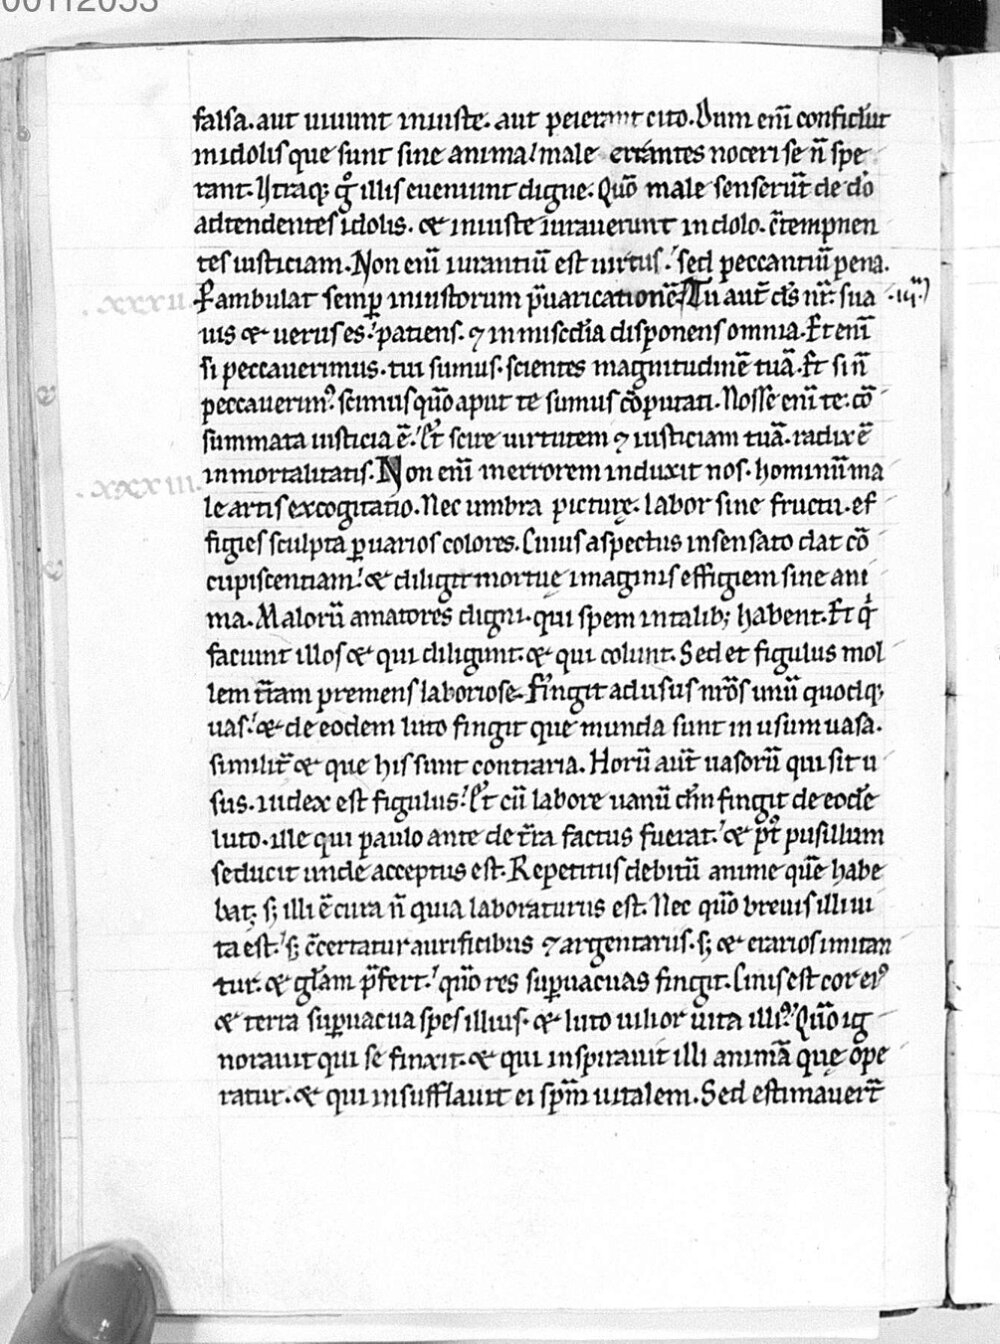 00112033
falsa. aut uiuunt iniuste. aut peierant cito. Dum eni̅ confidunt
in idolis que sunt sine anima! male errantes noceri se n̅ spe
rant. Vtraq; g̊ illis eueniunt digne. Quō male senserūt de dō
adtendentes idolis. & iniuste iurauerunt in dolo. c̅tempnen
tes iusticiam. Non eni̅ iurantiū est uirtus! sed peccantiū pena.
.xxxii. Pambulat semp̱ iniustorum p̅uaricationē. Tu aut̅ ds̅ nr̅: sua .iij.
uis & uerus es! patiens. ⁊ in misc̅dia disponens omnia. Et eni̅
si peccauerimus. tui sumus. scientes magnitudinē tuā. Et si n̅
peccauerim᷒ scimus quō aput te sumus cō̅putati. Nosse eni̅ te. cō
summata iusticia ē! Et scire uirtutem ⁊ iusticiam tuā. radix ē
inmortalitatis. Non eni̅ in errorem induxit nos. hominū ma
.xxxiii.
le artis excogitatio. Nec umbra picturę. labor sine fructu. ef
figies sculpta ꝑ uarios colores. Cuius aspectus insensato dat cō
cupiscentiam! & diligit mortuę imaginis effigiem sine ani
ma. Malorū amatores digni. qui spem in talib; habent. Et q̇
faciunt illos & qui diligunt. & qui colunt. Sed et figulus mol
lem tr̅am premens laboriose. fingit ad usus nr̅os unū quodq;
uas! & de eodem luto fingit que munda sunt in usum uasa.
similit̅ & que his sunt contraria. Horū aut̅ uasorū qui sit u
sus. iudex est figulus! Et cū labore uanū dm̅ fingit de eodē
luto. ille qui paulo ante de tr̅a factus fuerat! & p᷒t pusillum
seducit unde acceptus est. Repetitus debitū anime quē habe
bat; s; illi ē cura n̅ quia laboraturus est. Nec quō breuis illi ui
ta est! s; c̅certatur aurificibus ⁊ argentariis. s; & erarios imitan
tur. & gl̅am p̅fert! quō res sup̱uacuas fingit. Cinis est cor ei᷒
& terra sup̱uacua spes illius. & luto uilior uita illi᷒! Quō ig
norauit qui se finxit. & qui inspirauit illi animā quę ope
ratur. & qui insufflauit ei spm̅ uitalem. Sed estimauerт̅